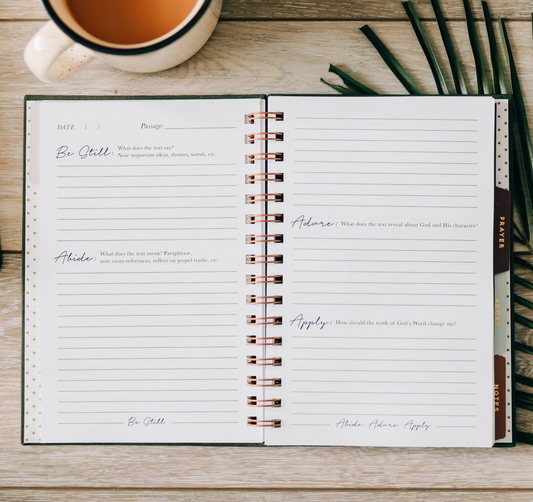 DATE / / Passage:
Be Still: What does the text say?
Note important ideas, themes, words, etc.
Abide: What does the text mean? Paraphrase,
note cross-references, reflect on gospel truths, etc.
Be Still
Adore: What does the text reveal about God and His character?
Apply: How should the truth of God's Word change me?
Abide Adore Apply
PRAYER
NOTES